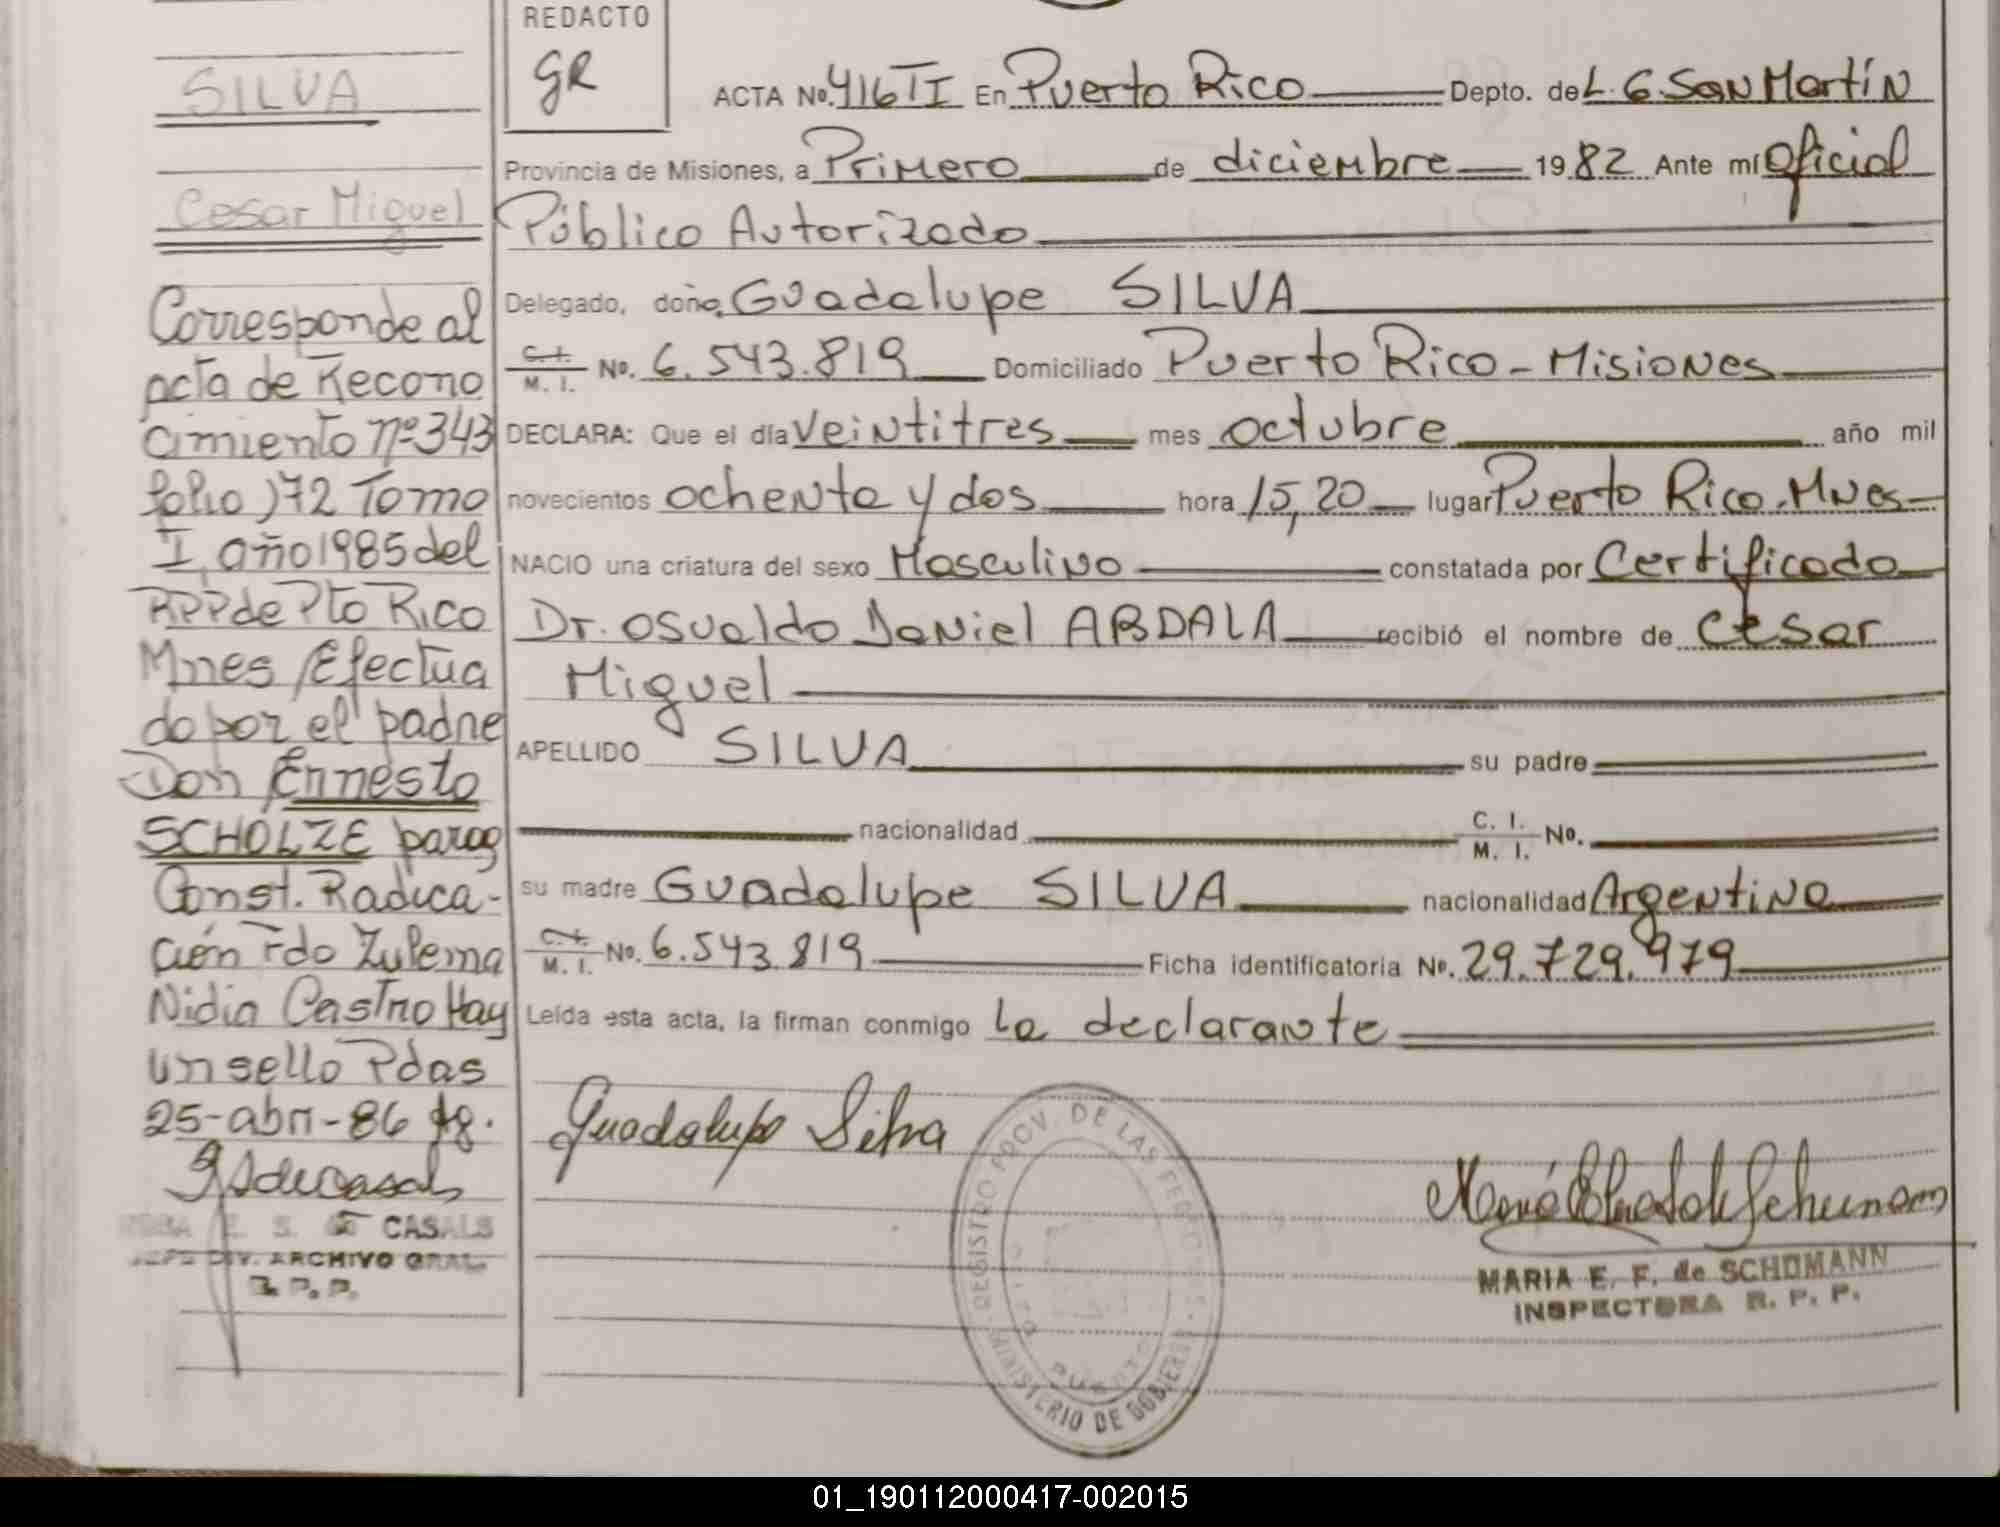 REDACTO
GR
SILVA
Cesar Miguel
Corresponde al
acta de Recono
cimiento nº 343
folio 172 Tomo
I, año 1985 del
RPP de Pto Rico
Mnes /Efectua
do por el padre
Don Ernesto
SCHOLZE parag
Const. Radica-
ción Fdo Zulema
Nidia Castro Hay
un sello Pdas
25-abri-86 fg.
E. S. de CASALS
DIV. ARCHIVO GRAL.
R. P. P.
ACTA No. 416 TI En Puerto Rico Depto. de L. G. San Martín
Provincia de Misiones, a Primero de diciembre 1982 Ante mí Oficial
Público Autorizado
Delegado, doña, Guadalupe SILVA
C. I.
M. I. No. 6.543.819 Domiciliado Puerto Rico - Misiones
DECLARA: Que el día veintitres mes octubre año mil
novecientos ochenta y dos hora 15,20 lugar Puerto Rico. Mnes
NACIO una criatura del sexo Masculino constatada por Certificado
Dr. Osvaldo Daniel ABDALA recibió el nombre de Cesar
Miguel
APELLIDO SILVA su padre
nacionalidad C. I.
M. I. No.
su madre Guadalupe SILVA nacionalidad Argentina
C. I.
M. I. No. 6.543.819 Ficha identificatoria No. 29.729.979
Leída esta acta, la firman conmigo la declarante
Guadalupe Silva
REGISTRO PROV. DE LAS PERSONAS
MINISTERIO DE GOBIERNO
PUERTO RICO
MARIA E. F. de SCHUMANN
INSPECTORA R. P. P.
01_190112000417-002015